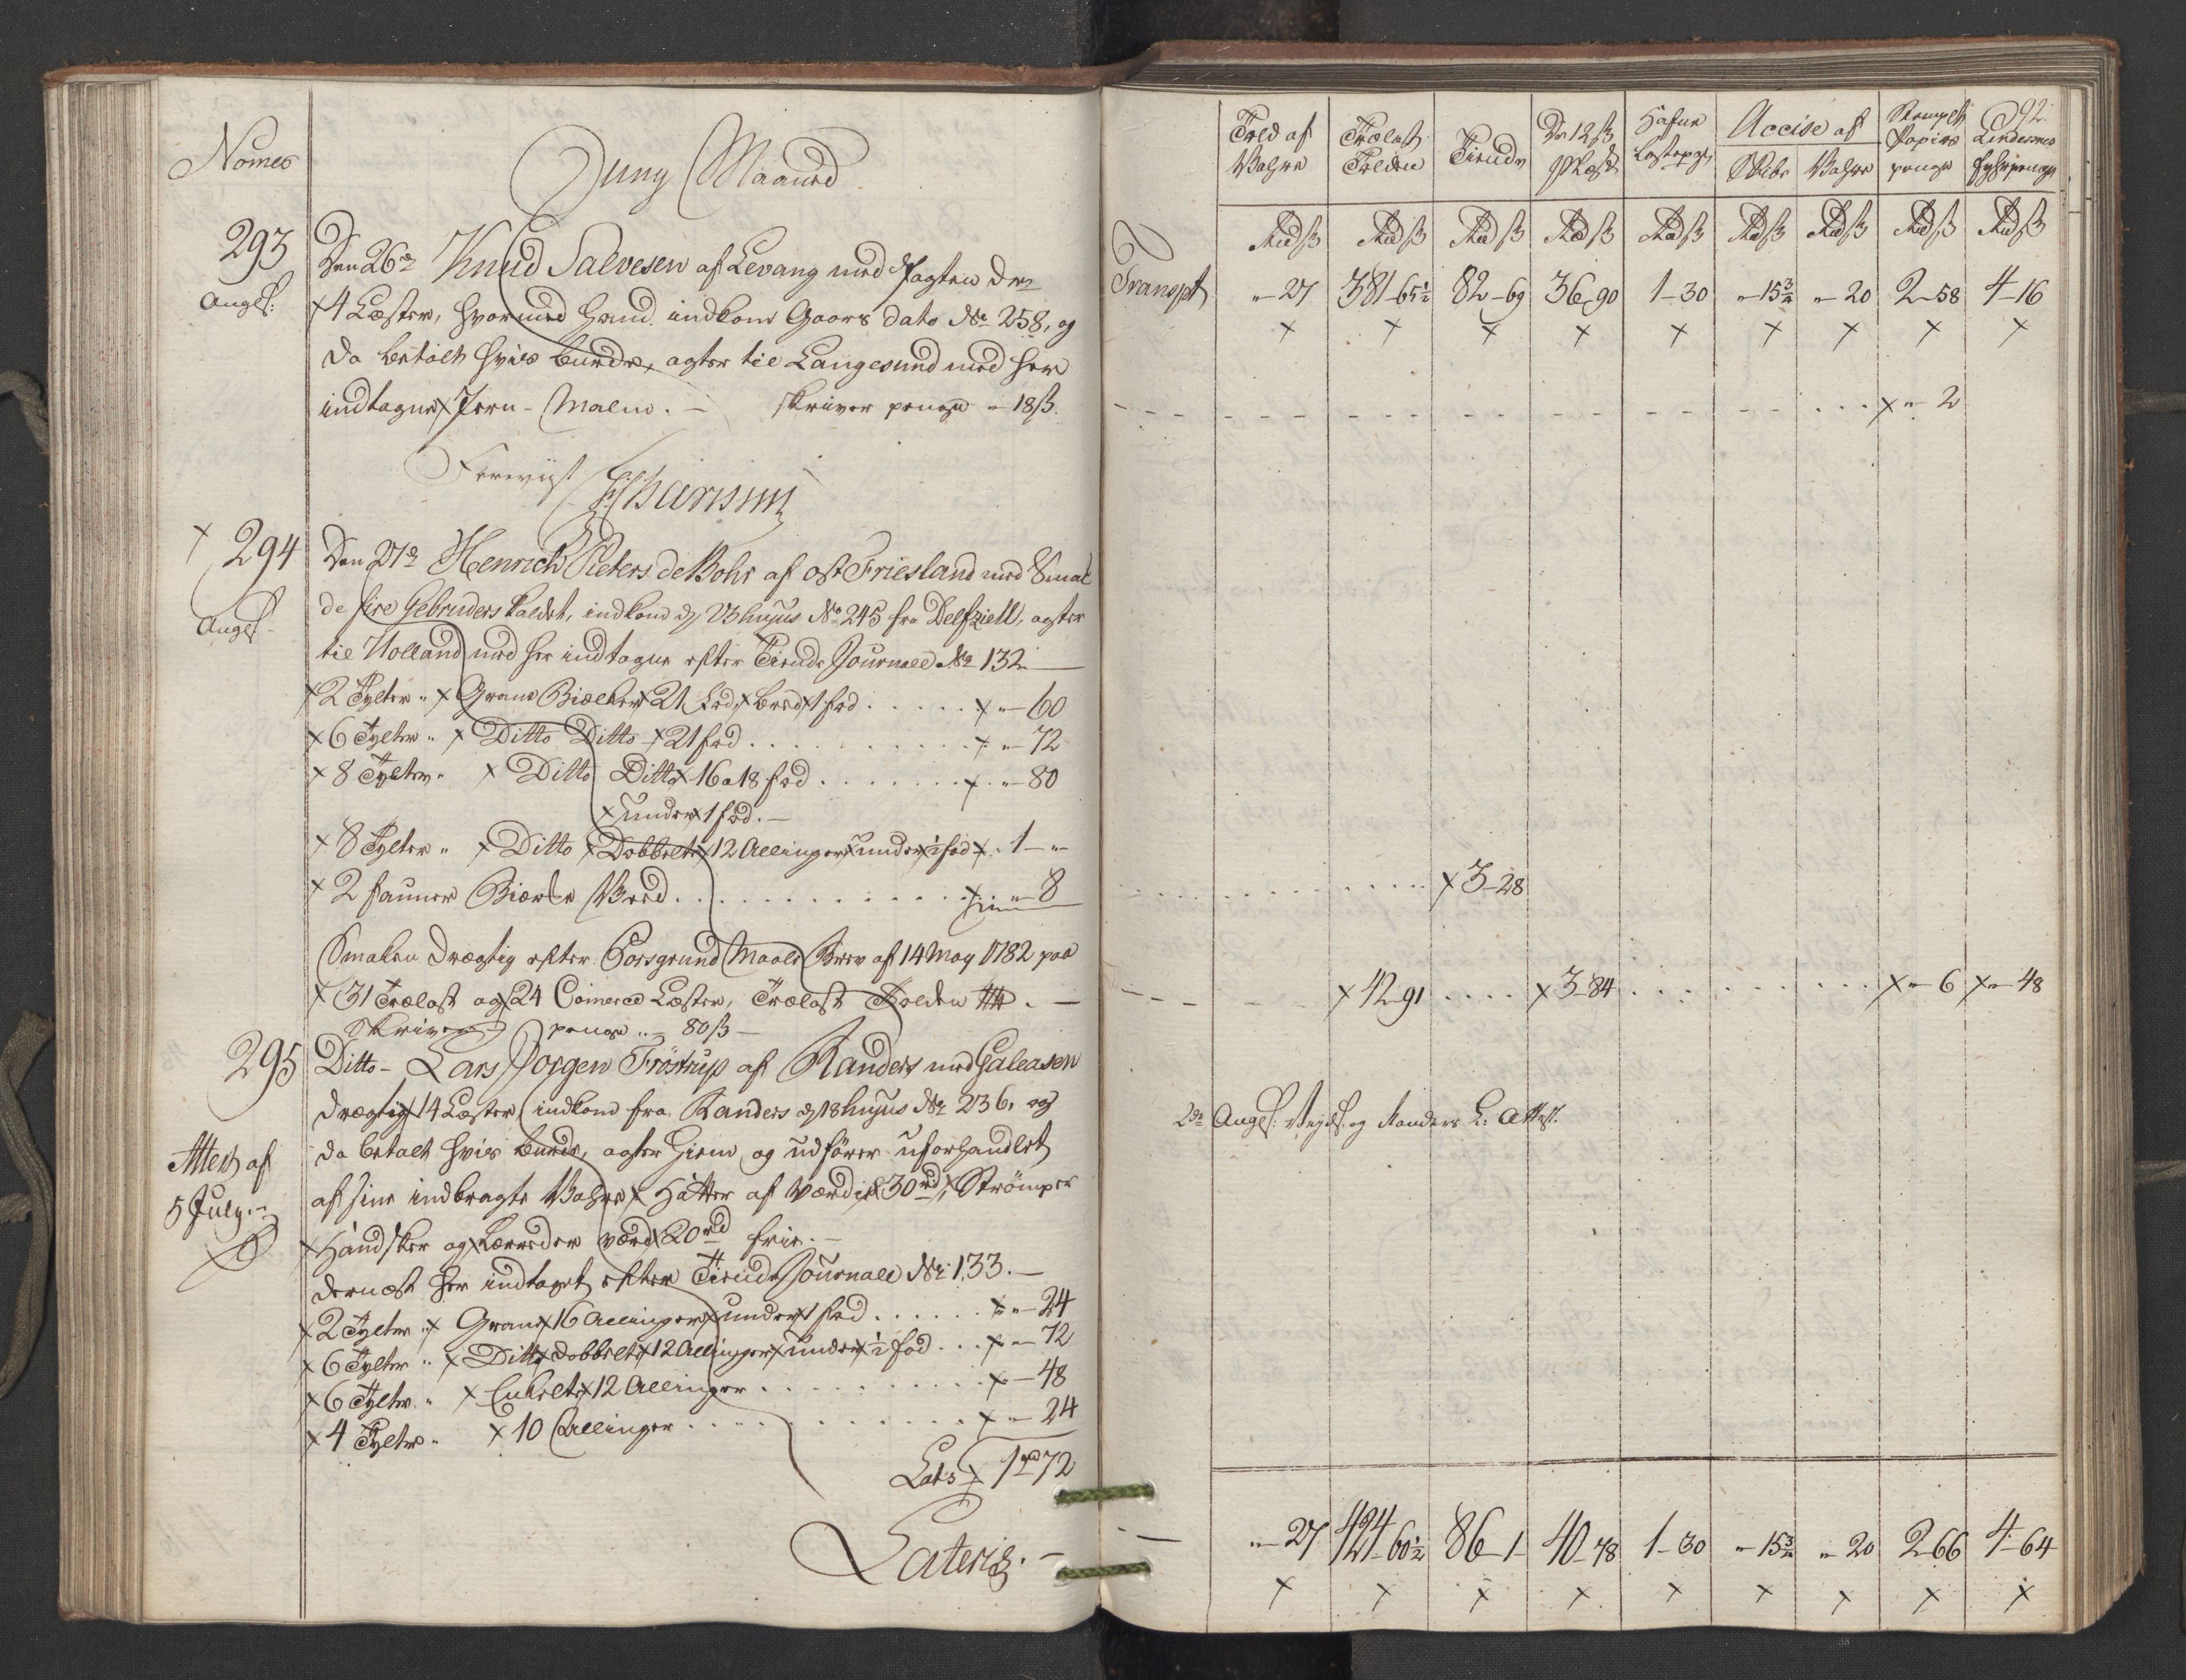 Nomer
Juny Maaned
293
Angl:
Den 26de Knud Salvesen af Levang med Jagten dr:
4 Læster, hvormed Hand indkom Gaars dato No 258, og
da betalt hvis burde, agter til Langesund med her
indtagne Jern-Malm. — skriver penge - 18 ß.
294
Angl-
Den 27de Henrich Pieters de Bohr af Ost Friesland med Smak
de fire Gebruders kaldet, indkom d 23 hujus No 245 fra Delfziell, agter
til Holland med her indtagne efter Tiende Journall No 132 —
2 Tylter " Grane Bielker 21 fod, bred 1 fod . . . . . " — 60
6 Tylter " Ditto Ditto 21 fod . . . . . " — 72
8 Tylter " Ditto Ditto 16 a 18 fod . . . . . " — 80
under 1 fod. —
8 Tylter " Ditto Dobbelte 12 Allinger under ½ fod . 1 — "
2 faune Birke Ved . . . . . " — 8
Smaken drægtig efter Porsgrund Maale Brev af 14 May 1782 paa
31 Trælast og 24 Comerce Læster, Trælast Tolden —
Skriver penge " — 80 ß —
295
Attest af
5 July. —
Ditto — Lars Jørgen Tröstrup af Randers med Galeasen
drægtig 14 Læster, indkom fra Randers d 18 hujus No 236, og
da betalt hvis burde, agter hiem, og udfører uforhandlet
af sine indbragte Vahre Hatter af Værdie 30 rd, Strömper
Handsker og Lærreder værd 20 rd frie. —
dernest her indtaget efter Tiende Journall No 133. —
2 Tylter " Grane 16 Allinger under 1 fod . . . . . " — 24
6 Tylter " Ditto dobbelte 12 Allinger under ½ fod . . . " — 72
6 Tylter " Enkelte 12 Allinger . . . . . — 48
4 Tylter " 10 Allinger . . . . . " — 24
Lats 1 rd 72
Lateris. —
92
Told af Vahre | Trælast Tolden | Tiende | De 12 ß pr Læst | Hafne Lastepge | Accise af Skibe | Vahre | Stemplet Papirs penge | Lindesnes fyhrpenge
Rd ß | Rd ß | Rd ß | Rd ß | Rd ß | Rd ß | Rd ß | Rd ß | Rd ß
Transpt " — 27 | 381 — 65½ | 82 — 69 | 36 — 90 | 1 — 30 | " — 15¾ | " — 20 | 2 — 58 | 4 — 16
" — 2
3 — 28
42 — 91 | 3 — 84 | " — 6 | " — 48
2de Angl: og Randers attest.
" — 27 | 424 — 60½ | 86 — 1 — | 40 — 78 | 1 — 30 | " — 15¾ | " — 20 | 2 — 66 | 4 — 64